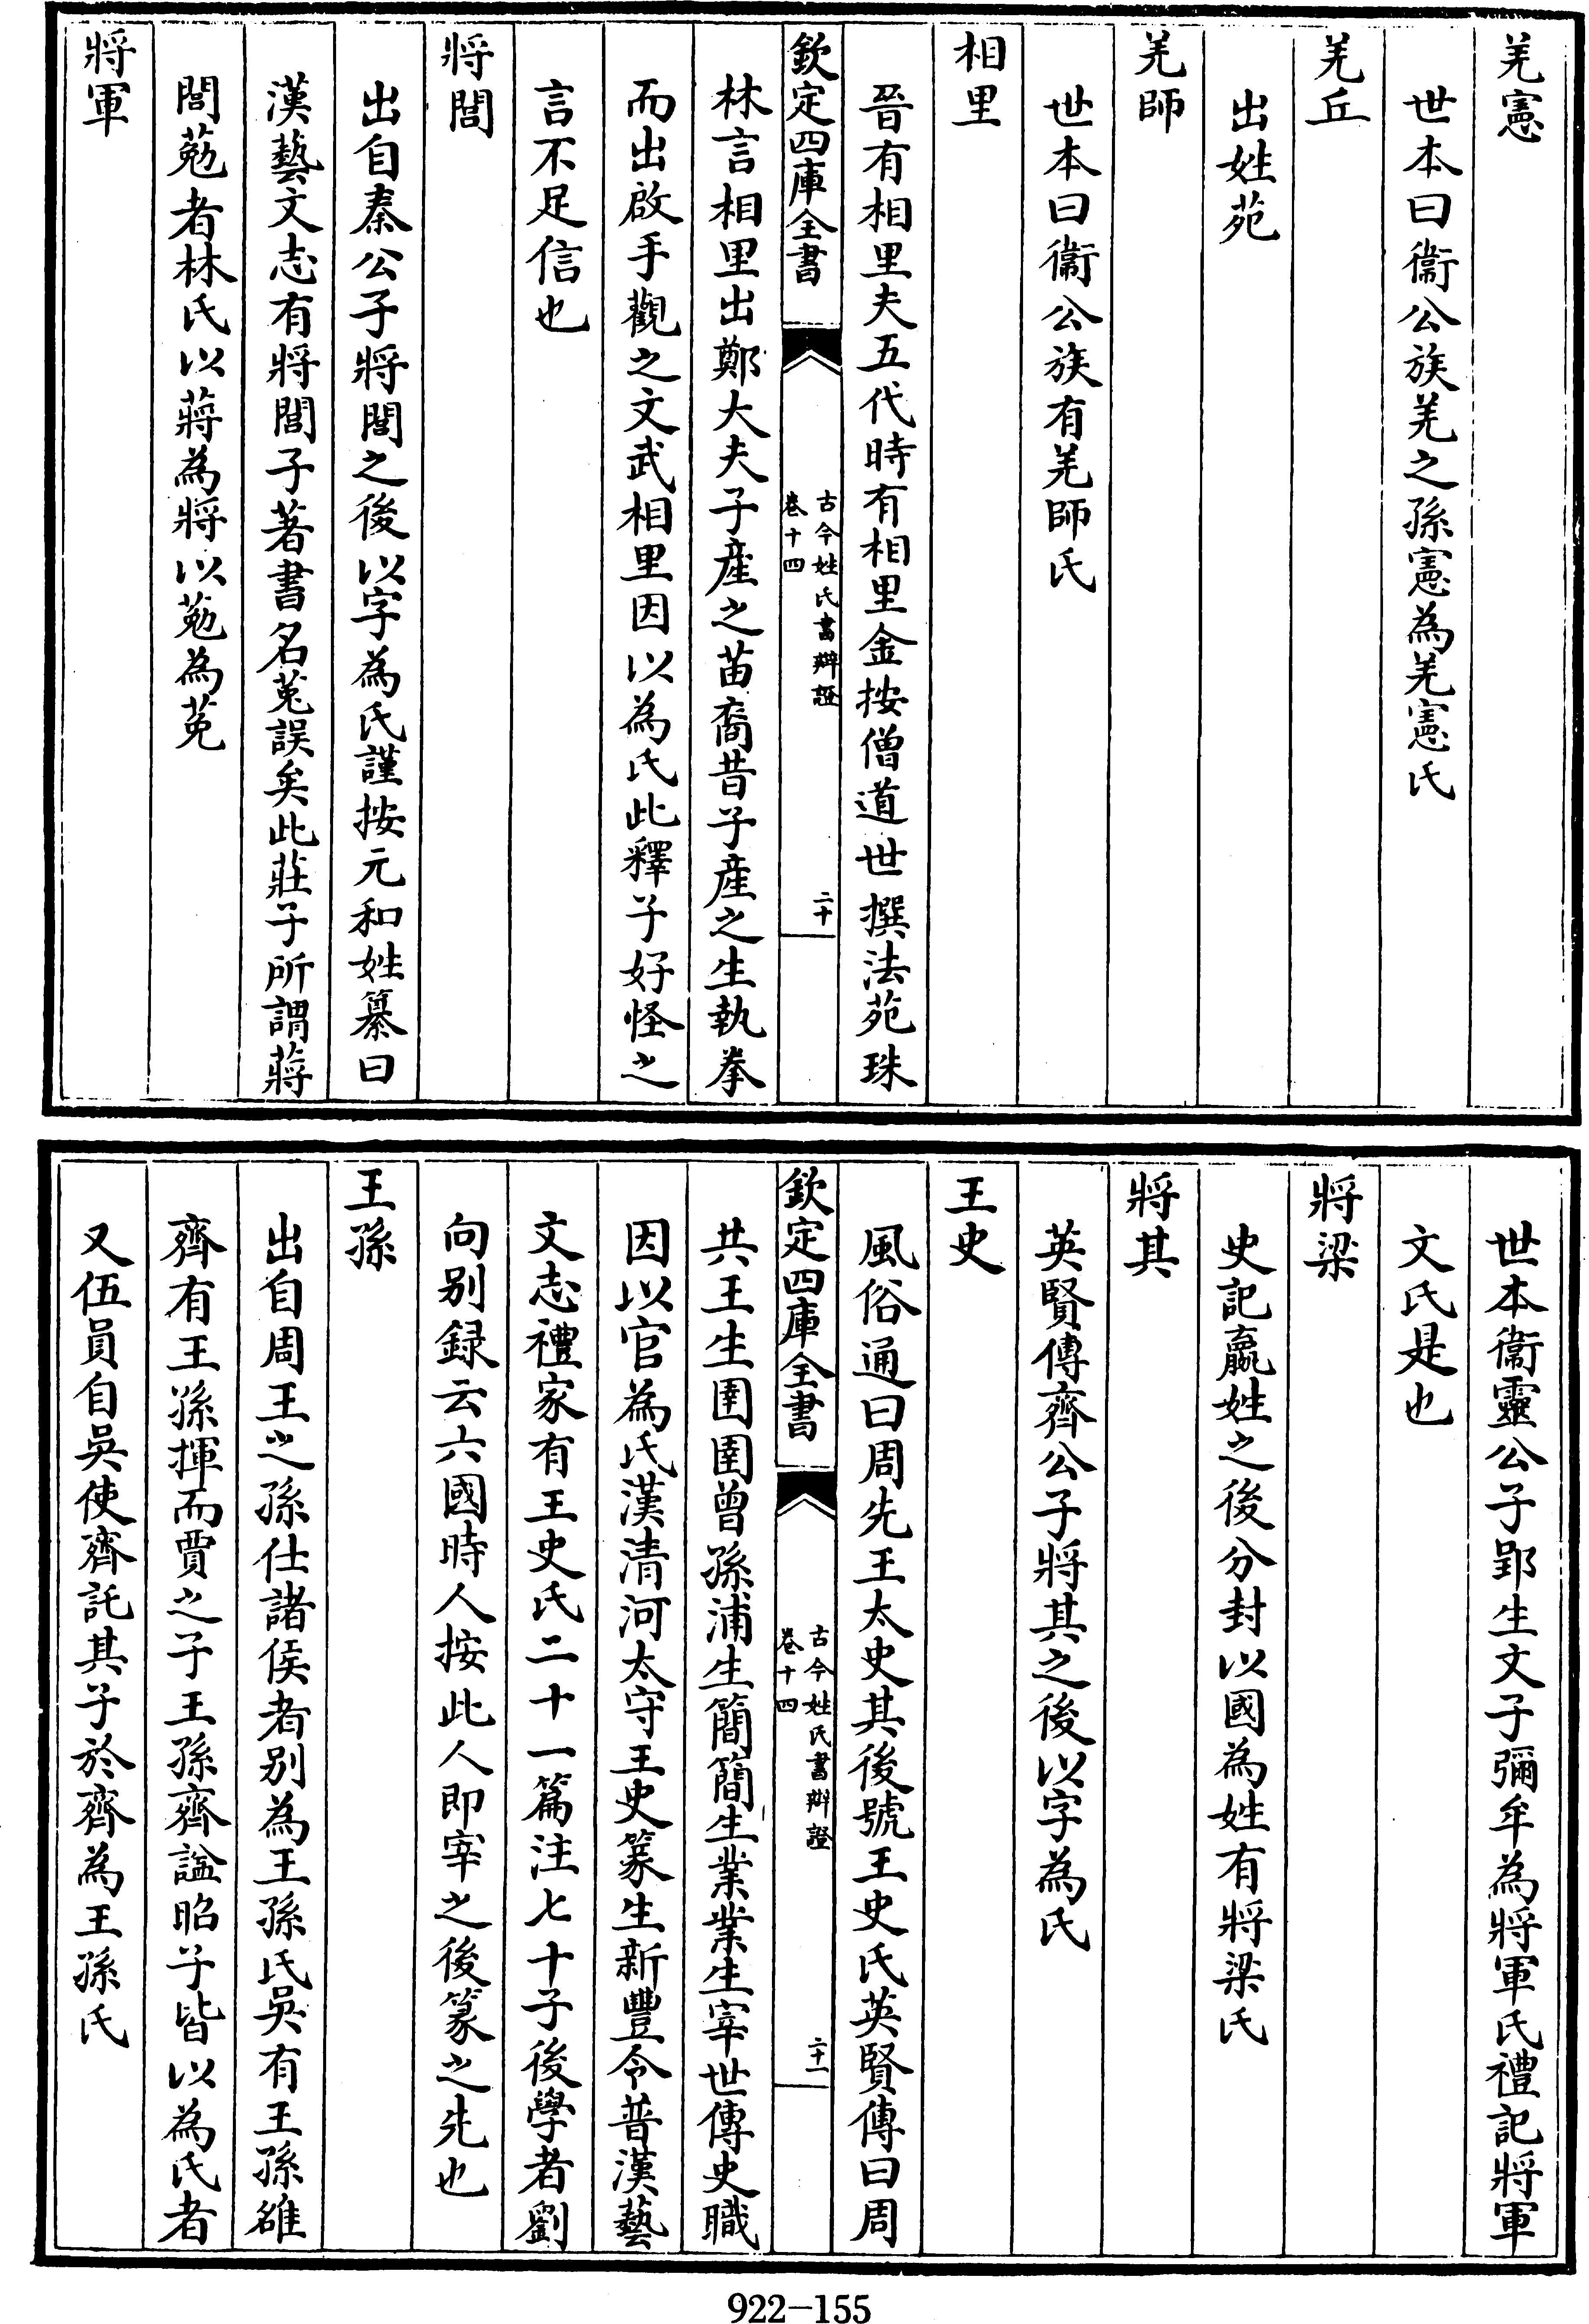 羌憲
世本曰衞公族羌之孫憲為羌憲氏
羌丘
出姓苑
羌師
世本曰衞公族有羌師氏
相里
晉有相里夫五代時有相里金按僧道世撰法苑珠
欽定四庫全書
古今姓氏書辯證
卷十四
二十
林言相里出鄭大夫子產之苗裔昔子產之生執拳
而出啟手觀之文武相里因以為氏此釋子好怪之
言不足信也
將閭
出自秦公子將閭之後以字為氏謹按元和姓纂曰
漢藝文志有將閭子著書名菟誤矣此莊子所謂蔣
閭葂者林氏以蔣為將以葂為菟
將軍
世本衞靈公子郢生文子彌牟為將軍氏禮記將軍
文氏是也
將梁
史記嬴姓之後分封以國為姓有將梁氏
將其
英賢傳齊公子將其之後以字為氏
王史
風俗通曰周先王太史其後號王史氏英賢傳曰周
欽定四庫全書
古今姓氏書辯證
卷十四
二十一
共王生圉圉曾孫浦生簡簡生業業生宰世傳史職
因以官為氏漢清河太守王史篆生新豐令普漢藝
文志禮家有王史氏二十一篇注七十子後學者劉
向别録云六國時人按此人即宰之後篆之先也
王孫
出自周王之孫仕諸侯者别為王孫氏吳有王孫雒
齊有王孫揮而賈之子王孫齊謚昭子皆以為氏者
又伍員自吳使齊託其子於齊為王孫氏
922-155